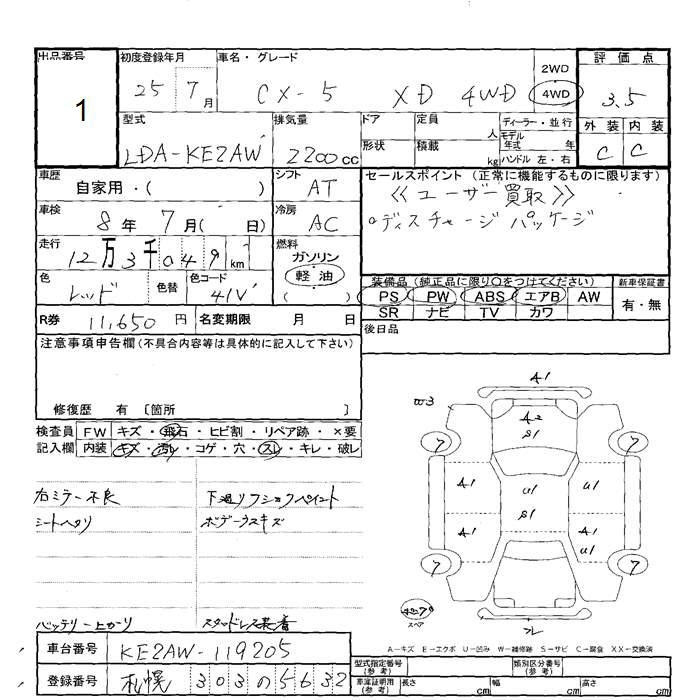 出品番号 初度登録年月 車名・グレード 評価点
1 25 7月 CX-5 XD 4WD 2WD 4WD 3.5
型式 排気量 ドア 定員 人 ディーラー・並行 外装 内装
LDA-KE2AW 2200cc 形状 積載 kg モデル年式 年 ハンドル 左・右 C C
車歴 自家用・( ) シフト AT セールスポイント(正常に機能するものに限ります)
<<ユーザー買取>>
車検 8年 7月( 日) 冷房 AC
○ディスチャージ パッケージ
走行 12万3千049km 燃料 ガソリン 軽油 ( )
色 レッド 色替 色コード 41V
装備品(純正品に限り○をつけてください) 新車保証書
PS PW ABS エアB AW 有・無
SR ナビ TV カワ
R券 11,650円 名変期限 月 日 後日品
注意事項申告欄(不具合内容等は具体的に記入して下さい)
修復歴 有 〔箇所 〕
検査員 FW キズ・飛石・ヒビ割・リペア跡・×要
記入欄 内装 キズ・汚レ・コゲ・穴・スレ・キレ・破レ
右ミラー不良 下廻リフショックペイント
シートヘタリ ボデーラスキズ
バッテリー上がり スタッドレス装着
A1
A2
S1
7 7
A1 U1 U1
S1
A1 A1
U1
7 7
スペア
A-キズ E-エクボ U-凹み W-補修跡 S-サビ C-腐食 XX-交換済
車台番号 KE2AW-119205
型式指定番号(参考) 類別区分番号(参考)
登録番号 札幌 303の5632
車庫証明用(参考) 長さ cm 幅 cm 高さ cm